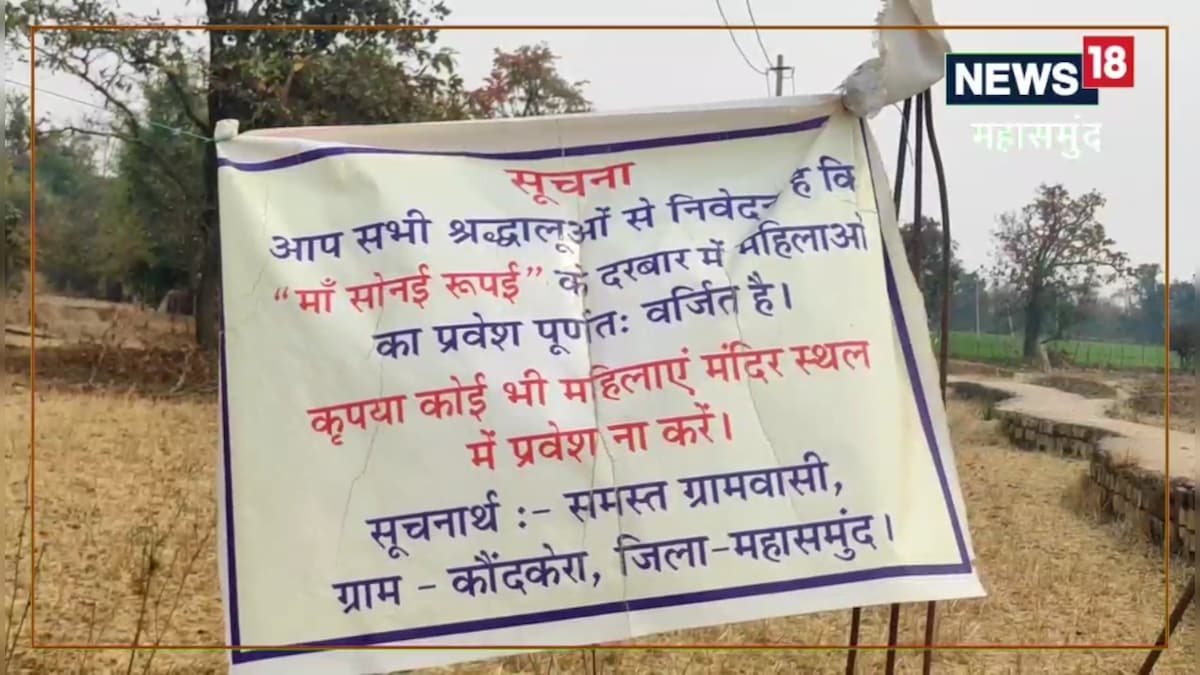 NEWS 18
महासमुंद
सूचना
आप सभी श्रद्धालूओं से निवेदन है कि
“माँ सोनई रूपई” के दरबार में महिलाओं
का प्रवेश पूर्णतः वर्जित है।
कृपया कोई भी महिलाएं मंदिर स्थल
में प्रवेश ना करें।
सूचनार्थ :- समस्त ग्रामवासी,
ग्राम - कौंदकेरा, जिला-महासमुंद।